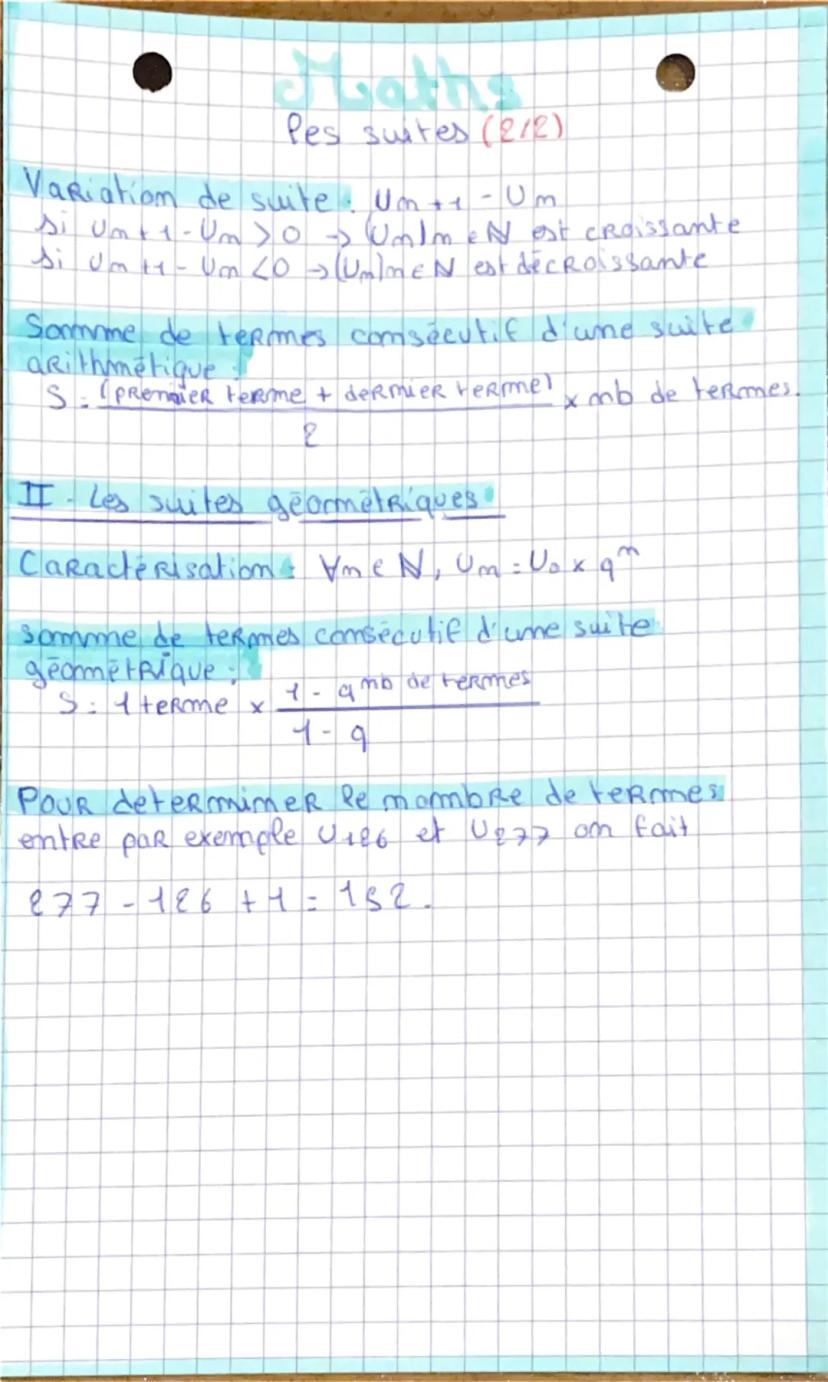 Maths
Les suites (2/2)
Variation de suite : Un+1 - Un
si Un+1 - Un > 0 → (Un)n ∈ ℕ est croissante
si Un+1 - Un < 0 → (Un)n ∈ ℕ est décroissante
Somme de termes consécutif d'une suite
arithmétique :
S = (premier terme + dernier terme) / 2 × nb de termes.
II - Les suites géométriques
Caractérisation : ∀n ∈ ℕ, Un = U0 × qⁿ
somme de termes consécutif d'une suite
géométrique :
S = 1 terme × (1 - q^nb de termes) / (1 - q)
Pour determiner le nombre de termes
entre par exemple U126 et U277 on fait
277 - 126 + 1 = 152.